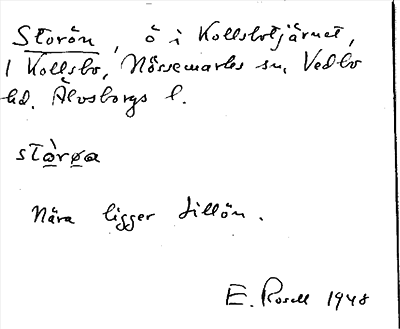 Storön, ö i Kollsbotjärnet,
1 Kollsbo, Nössemarks sn, Vedbo
hd. Älvsborgs l.
stòrøa
Nära ligger Lillön.
E. Rosell 1948